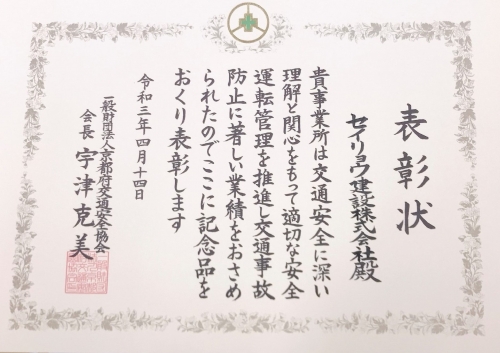 表彰状
セイリョウ建設株式会社殿
貴事業所は交通安全に深い
理解と関心をもって適切な安全
運転管理を推進し交通事故
防止に著しい業績をおさめ
られたのでここに記念品を
おくり表彰します
令和三年四月十四日
一般財団法人京都府交通安全協会
会長 宇津克美